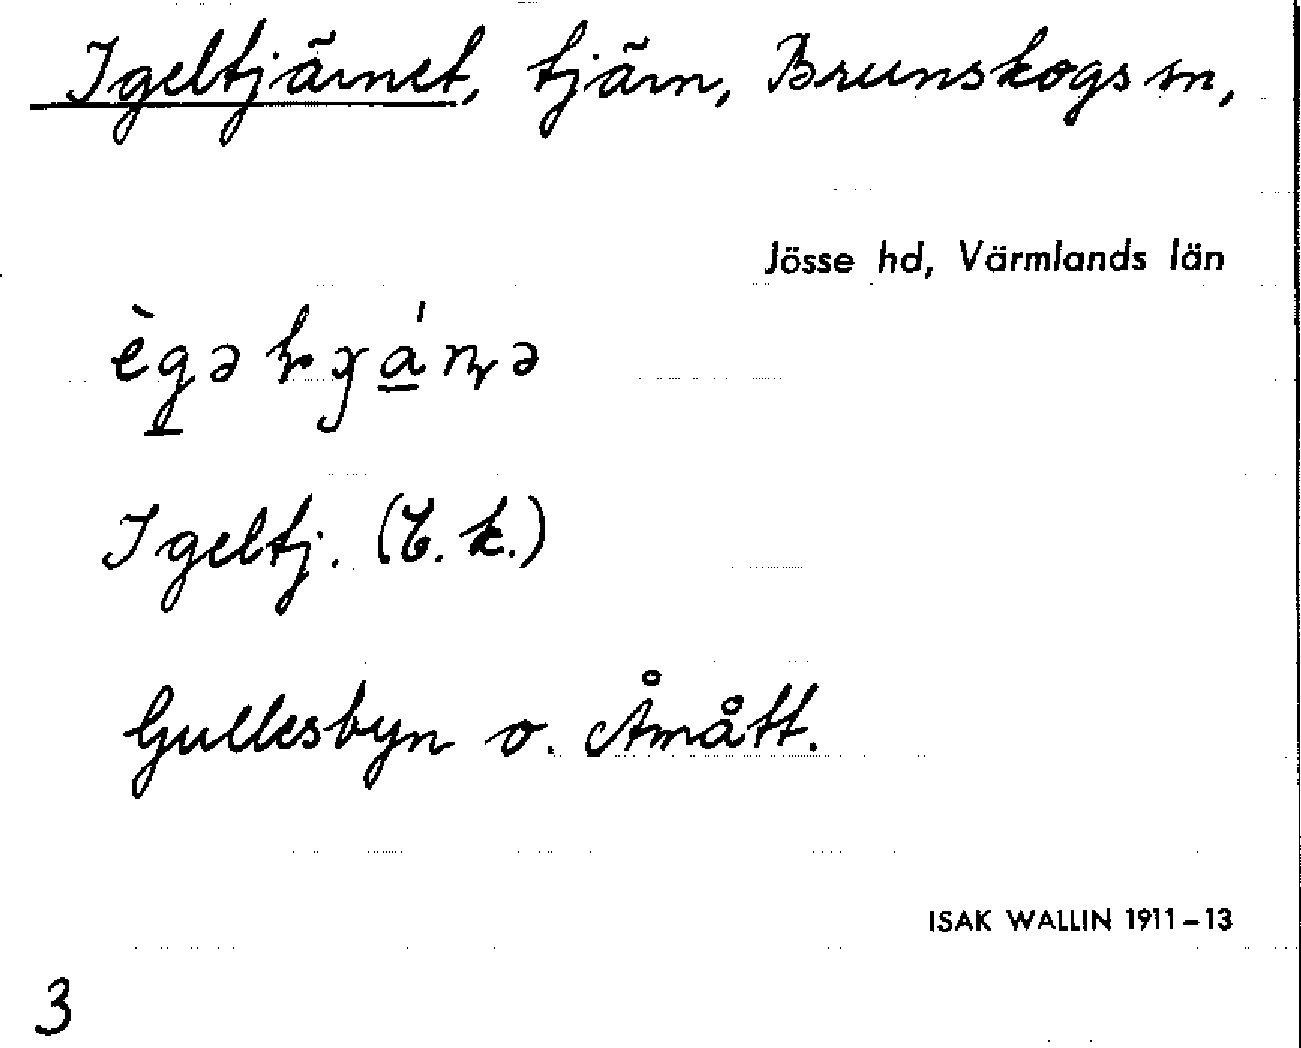 Igeltjärnet, tjärn, Brunskogs sn,
Jösse hd, Värmlands län
Igeltj. (E. k.)
Gullesbyn o. Åmått.
ISAK WALLIN 1911–13
3